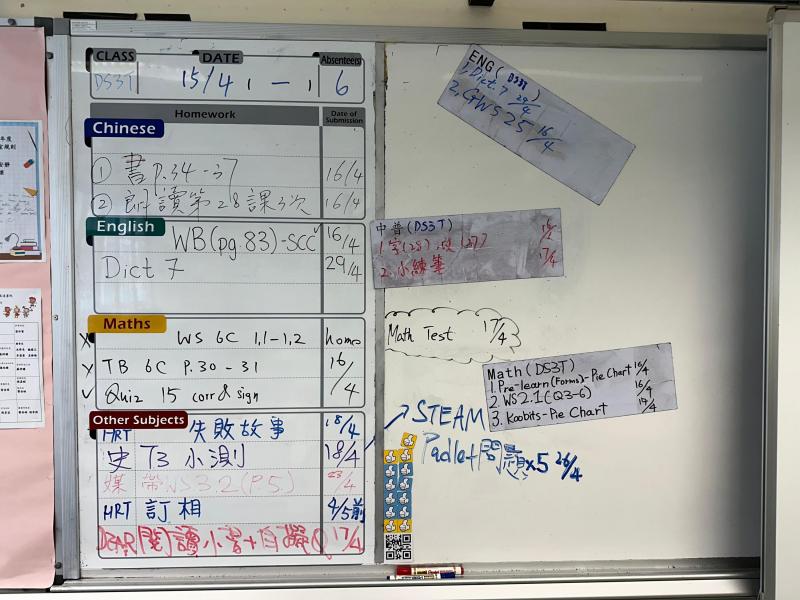 CLASS DATE Absenteers
DS3T 15/4 ( 一 ) 6
Homework Date of Submission
Chinese
① 書 p.34-37 16/4
② 朗讀第28課3次 16/4
English
WB(pg.83)-SCC 16/4
Dict 7 29/4
Maths
WS 6C 1.1-1.2 home
TB 6C P.30-31 16/4
Quiz 15 corr & sign
Other Subjects
HRT 失敗故事 18/4
史 T3 小測 18/4
WS3.2(P.5) 23/4
HRT 訂相 4/5前
DEAR 閱讀小 + 自 17/4
ENG (DS3T)
1. Dict. 7 29/4
2. GWS 25 16/4
中普(DS3T)
1.字(28)、段(27) 16/4
2.小練筆 17/4
Math Test 17/4
Math (DS3T)
1. Pre-learn (Forms)-Pie Chart 15/4
2. WS2.1 (Q3-6) 16/4
3. Koobits-Pie Chart 19/4
STEAM
Padlet問題x5 26/4